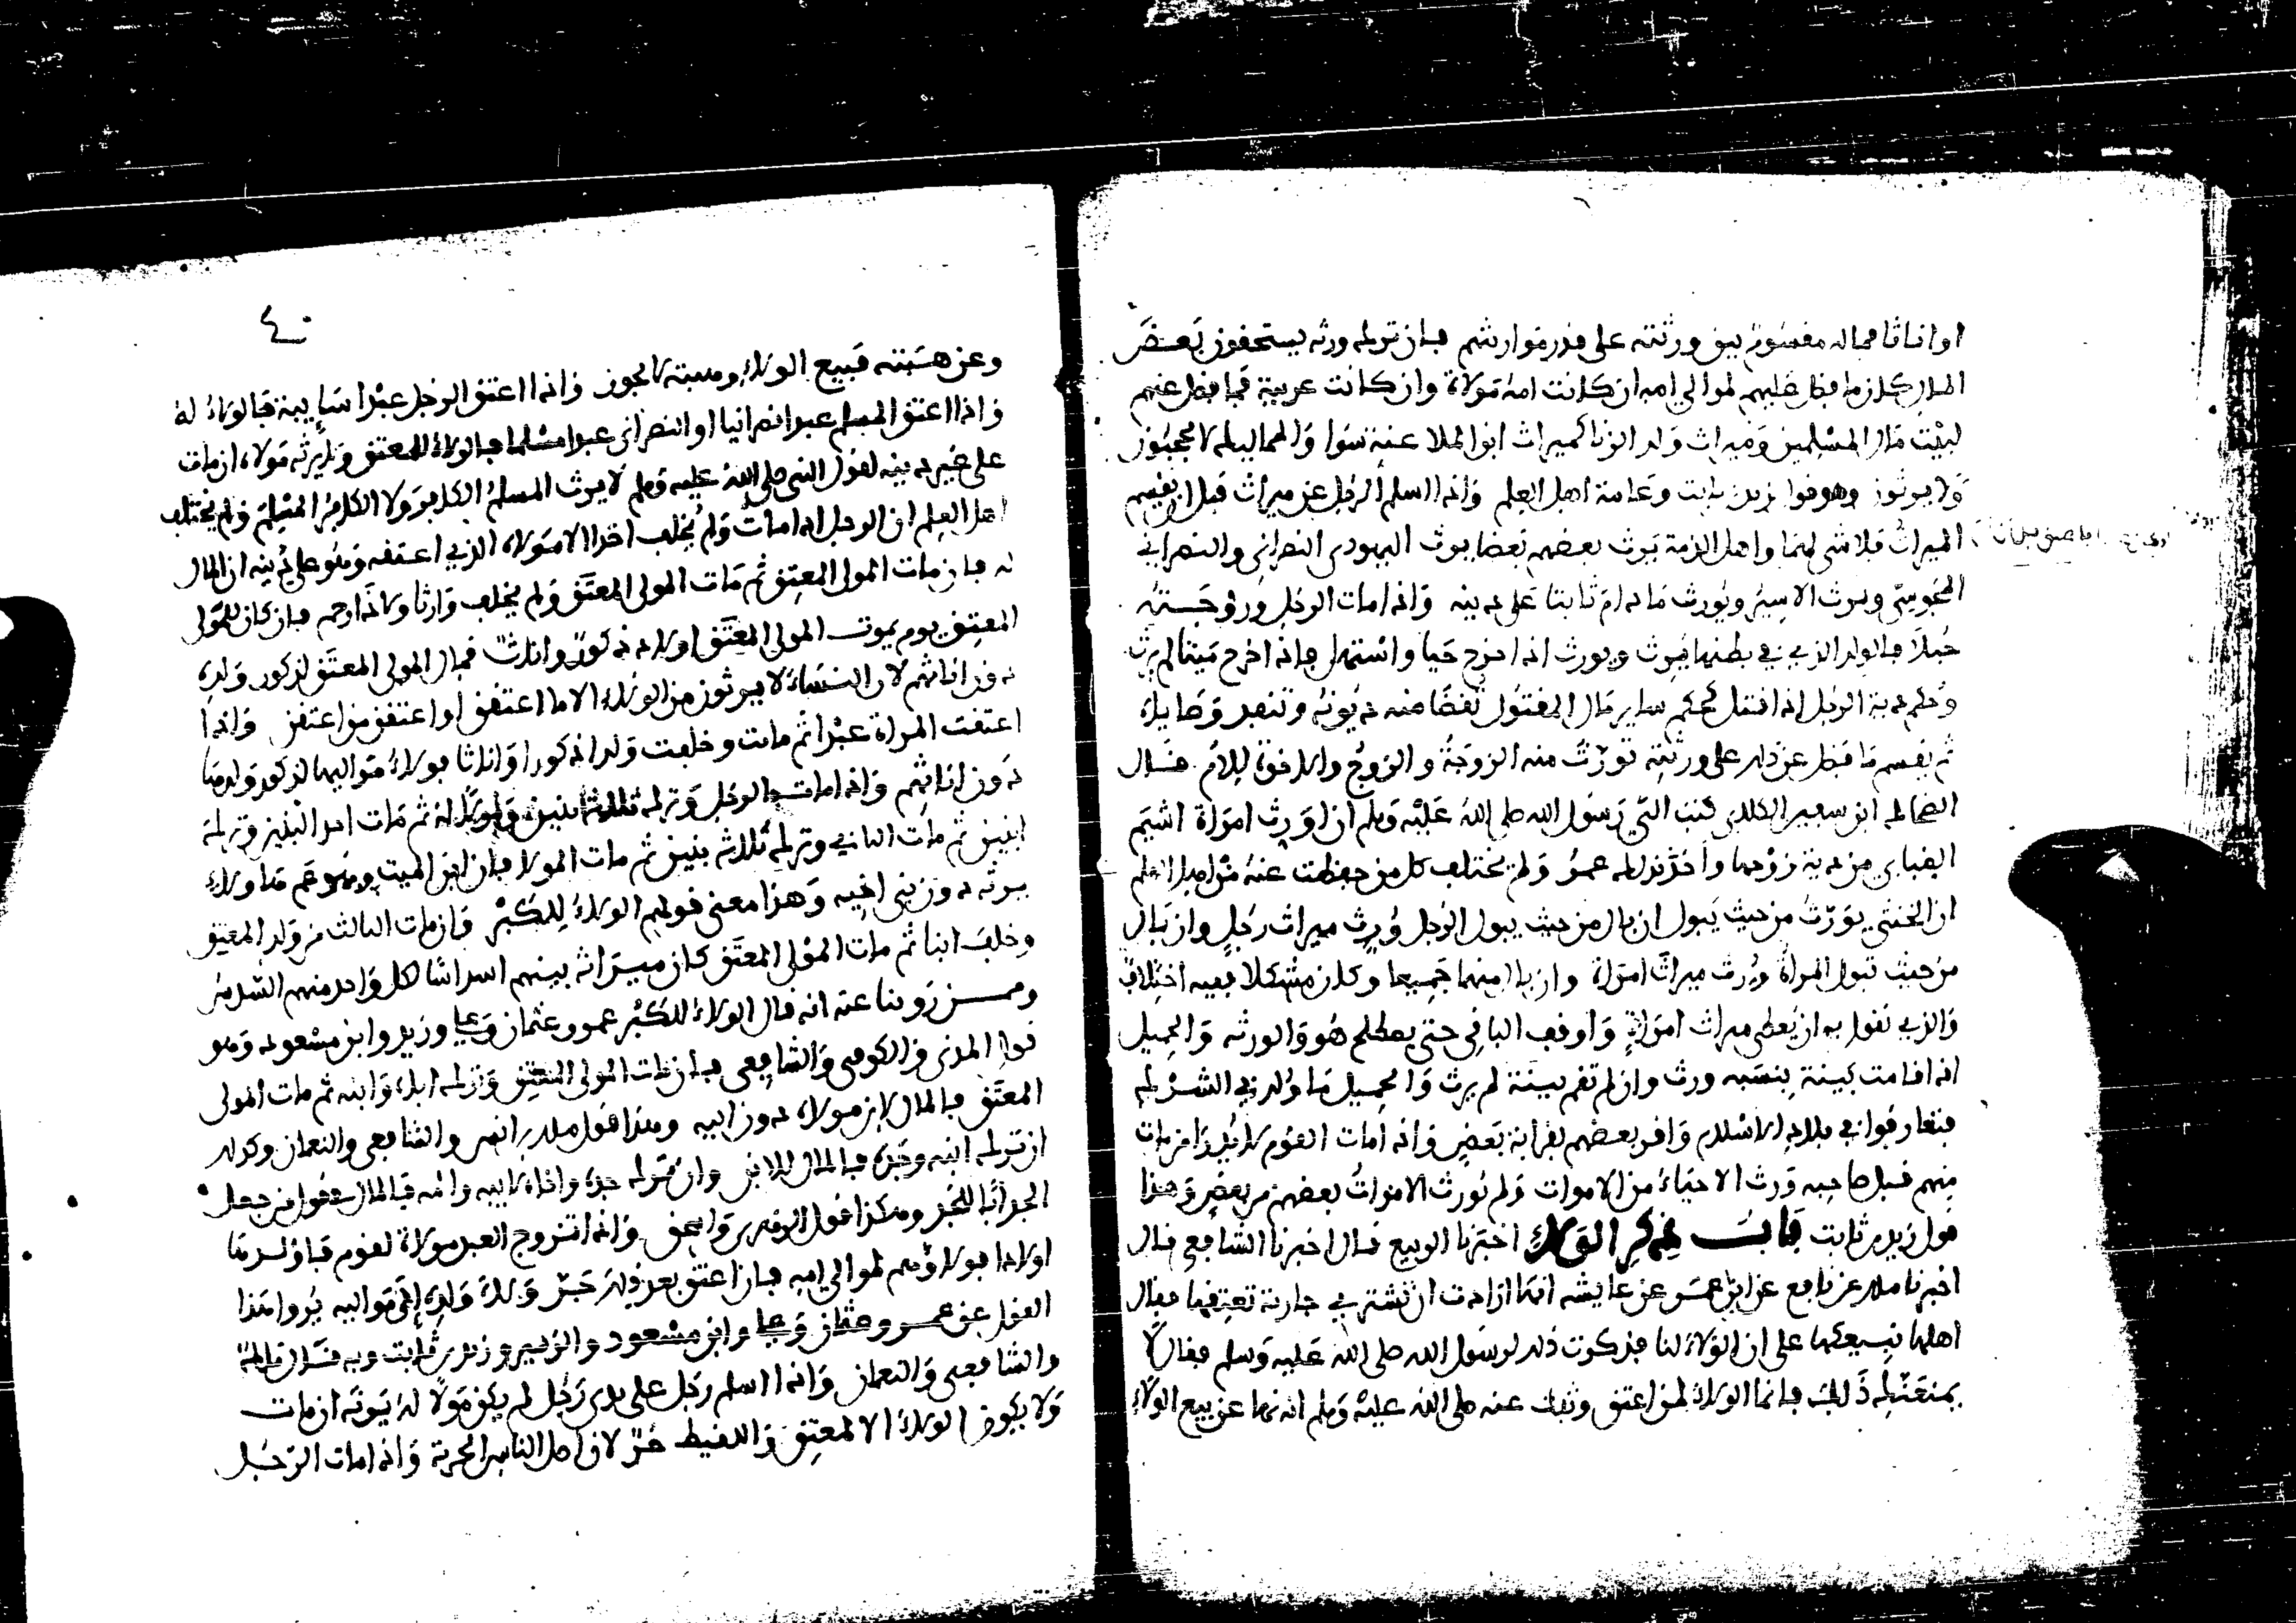 او اناثا فماله مقسوم بين ورثته على قدر مواريثهم فان ترك ورثه يستحقون بعض
المال كان ما فضل عليهم لموالي امه ان كانت امه مولاة وان كانت عربية فما فضل عنهم
لبيت مال المسلمين وميراث ولد الزنا كميراث ابن الملاعنة سوا والمماليك لا يحجبون
ولا يرثون وهو قول زيد بن ثابت وعامة اهل العلم واذا اسلم الرجل عن ميراث قبل ان يقسم
الميراث فلا شي لهما واهل الذمة يرث بعضهم بعضا يرث اليهودي النصراني والنصراني
المجوسي ويرث الاسير ويورث ما دام ثابتا على دينه واذا مات الرجل وزوجته
حبلا فالولد الذي في بطنها يرث ويورث اذا خرج حيا واستهل فاذا خرج ميتا لم يرث
وحكم دية الرجل اذا قتل كحكم ساير مال المقتول تقضا منه ديونه وتنفذ وصاياه
ثم يقسم ما فضل عن ذلك على ورثته تورث منه الزوجة والزوج والاخوة للام قال
الضحاك ابن سفين الكلابي كتب الي رسول الله صلى الله عليه وسلم ان اورث امراة اشيم
الضبابي من دية زوجها واخذ بذلك عمر ولم يختلف كل من حفظت عنه من اهل العلم
ان الخنثى يورث من حيث يبول ان بال من حيث يبول الرجل ورث ميراث رجل وان بال
من حيث تبول المراة ورث ميراث امراة وان بال منهما جميعا وكان مشكلا ففيه اختلاف
والذي نقول به ان يعطى ميراث امراة واوقف الباقي حتى يصطلح هو والورثه والحميل
اذا قامت بينة بنسبه ورث وان لم تقم بينة لم يرث والحميل ما ولد في الشرك
فتعارفوا في بلاد الاسلام واقر بعضهم بقرابة بعض واذا مات القوم لا يدرا من مات
منهم قبل صاحبه ورث الاحياء من الاموات ولم نورث الاموات بعضهم من بعض وهذا
قول زيد بن ثابت باب ذكر الولاء اخبرنا الربيع قال اخبرنا الشافعي قال
اخبرنا ملك عن نافع عن ابن عمر عن عايشه انها ارادت ان تشتري جارية تعتقها فقال
اهلها نبيعكها على ان الولاء لنا فذكرت ذلك لرسول الله صلى الله عليه وسلم فقال لا
يمنعنك ذلك فانما الولاء لمن اعتق وثبت عنه صلى الله عليه وسلم انه نها عن بيع الولاء
٤٠
وعن هبته فبيع الولاء وهبته لا يجوز واذا اعتق الرجل عبدا سايبة فالولاء له
واذا اعتق المسلم عبدا نصرانيا او النصراني عبدا مسلما فالولاء للمعتق ولا يرثه مولاه ان مات
على غير دينه لقول النبي صلى الله عليه وسلم لا يرث المسلم الكافر ولا الكافر المسلم ولم يختلف
اهل العلم ان الرجل اذا مات ولم يخلف احدا الا مولاه الذي اعتقه وهو على دينه ان المال
له فان مات المولى المعتق ثم مات المولى المعتق ولم يخلف وارثا ولا ذا رحم فان كان للمولى
المعتق يوم يموت المولى المعتق اولاد ذكور واناث فمال المولى المعتق لذكور ولده
دون اناثهم لان النساء لا يرثون من الولاء الا ما اعتقن او اعتق من اعتقن واذا
اعتقت المراة عبدا ثم ماتت وخلفت ولدا ذكورا واناثا فولاء مواليها لذكور ولدها
دون اناثهم واذا مات الرجل وترك ثلاثة بنين ومولا له ثم مات احد البنين وترك
ابنين ثم مات الثاني وترك ثلاثه بنين ثم مات المولا فان ابن الميت وهو عم هاولاء
يرثه دون بني اخيه وهذا معنى قولهم الولاء للكبر فان مات الثالث من ولد المعتق
وخلف ابنا ثم مات المولى المعتق كان ميراثه بينهم اسداسا لكل واحد منهم السدس
وممن روينا عنه انه قال الولاء للكبر عمر وعثمان وعلي وزيد وابن مسعود وهو
قول المدني والكوفي والشافعي فان مات المولى المعتق وترك اباه وابنه ثم مات المولى
المعتق فالمال لابن مولاه دون ابيه وهذا قول ملك بن انس والشافعي والنعمان وكذلك
ان ترك ابنه وجده فالمال للابن وان ترك جده واخاه لابيه وامه فالمال في قول من جعل
الجد ابا للجد وهكذا قول واسحق واذا تزوج العبد مولاة لقوم فاولدها
اولادا فولاؤهم لموالي امه فان اعتق بعد ذلك جر ولاء ولده الى مواليه يروا هذا
القول عن عمر وعثمان وعلي وابن مسعود والزبير وزيد بن ثابت وبه قال مالك
والشافعي والنعمان واذا اسلم رجل على يدي رجل لم يكن مولا له يرثه ان مات
ولا يكون الولاء الا لمعتق واللقيط حر لان اصل الناس الحرية واذا مات الرجل